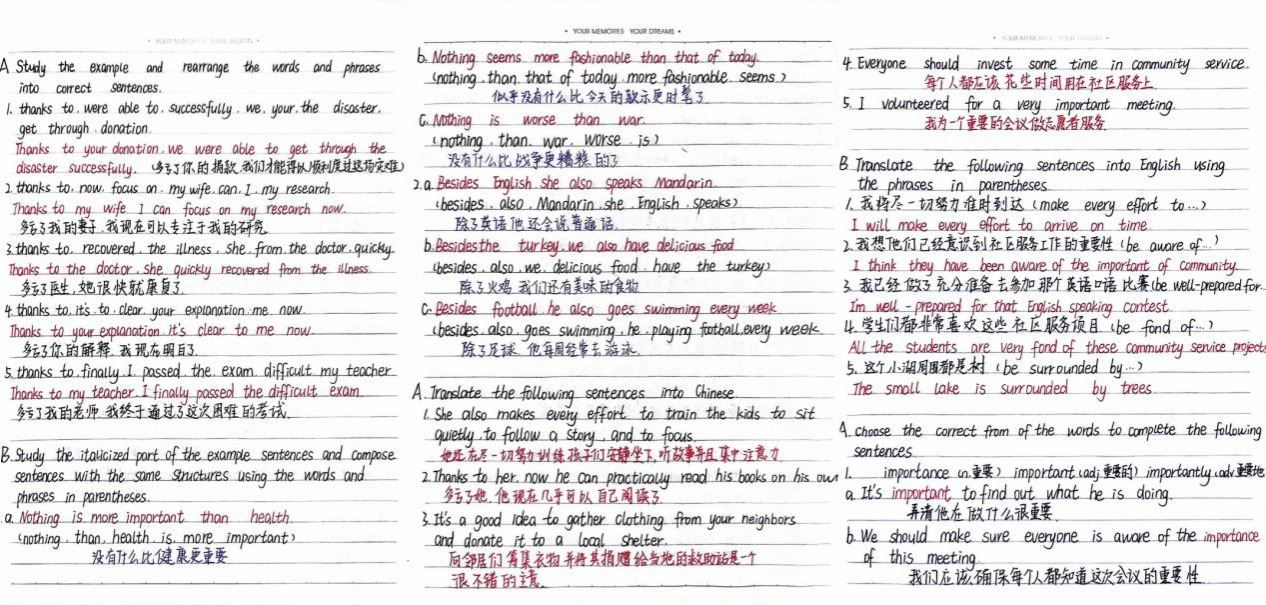 YOUR MEMORIES YOUR DREAMS
A Study the example and rearrange the words and phrases
into correct sentences.
1. thanks to. were able to. successfully. we. your. the disaster.
get through. donation.
Thanks to your donation, we were able to get through the
disaster successfully. (多亏了你的捐款,我们才能得以顺利度过这场灾难)
2. thanks to. now. focus on. my wife. can. I. my research.
Thanks to my wife I can focus on my research now.
多亏了我的妻子,我现在可以专注于我的研究.
3. thanks to. recovered. the illness. she. from. the doctor. quickly.
Thanks to the doctor, she quickly recovered from the illness.
多亏了医生,她很快就康复了.
4. thanks to. it's. to. clear. your explanation. me now.
Thanks to your explanation, it's clear to me now.
多亏了你的解释,我现在明白了.
5. thanks to. finally. I. passed. the exam. difficult. my teacher
Thanks to my teacher, I finally passed the difficult exam.
多亏了我的老师,我终于通过了这次困难的考试.
B. Study the italicized part of the example sentences and compose
sentences with the same structures using the words and
phrases in parentheses.
a. Nothing is more important than health
(nothing. than. health. is. more important)
没有什么比健康更重要
• YOUR MEMORIES YOUR DREAMS •
b. Nothing seems more fashionable than that of today.
(nothing. than. that of today. more fashionable. seems.)
似乎没有什么比今天的款示更时髦了
C. Nothing is worse than war.
(nothing. than. war. worse. is)
没有什么比战争更糟糕的了
2. a. Besides English she also speaks Mandarin
(besides. also. Mandarin. she. English. speaks)
除了英语他还会说普通话.
b. Besides the turkey, we also have delicious food
(besides. also. we. delicious food. have. the turkey)
除了火鸡 我们还有美味的食物
C. Besides football, he also goes swimming every week
(besides. also. goes swimming. he. playing football. every week
除了足球.他每周经常去游泳.
A. Translate the following sentences into Chinese
1. She also makes every effort to train the kids to sit
quietly, to follow a story, and to focus.
她还在尽一切努力训练孩子们安静坐下,听故事并且集中注意力
2. Thanks to her, now he can practically read his books on his own
多亏了她.他现在几乎可以自己阅读了.
3. It's a good idea to gather clothing from your neighbors
and donate it to a local shelter.
向邻居们筹集衣物并将其捐赠给当地的救助站是一个
很不错的主意.
• YOUR MEMORIES YOUR DREAMS •
4. Everyone should invest some time in community service.
每个人都应该花些时间用在社区服务上
5. I volunteered for a very important meeting.
我为一个重要的会议做志愿者服务.
B Translate the following sentences into English using
the phrases in parentheses
1. 我将尽一切努力准时到达 (make every effort to...)
I will make every effort to arrive on time.
2. 我想他们已经意识到社区服务工作的重要性 (be aware of...)
I think they have been aware of the important of community.
3. 我已经做了充分准备去参加那个英语口语比赛 (be well-prepared for..
I'm well-prepared for that English speaking contest.
4. 学生们都非常喜欢这些社区服务项目 (be fond of...)
All the students are very fond of these community service projects
5. 这个小湖周围都是树 (be surrounded by...)
The small lake is surrounded by trees.
A. choose the correct from of the words to complete the following
sentences.
1. importance (n.重要) important (adj 重要的) importantly (adv.重要地
a. It's important to find out what he is doing.
弄清他在做什么很重要.
b. We should make sure everyone is aware of the importance
of this meeting.
我们应该确保每个人都知道这次会议的重要性